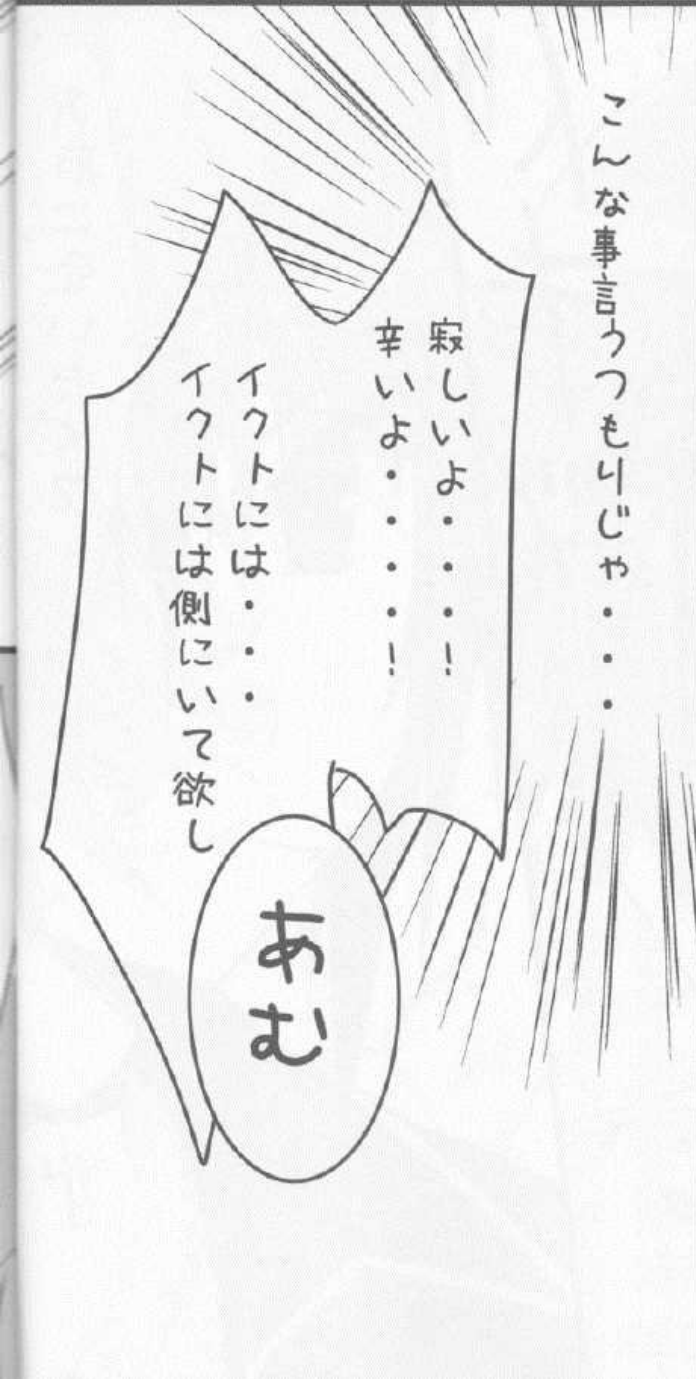 こんな事言うつもりじゃ・・・
寂しいよ・・・・!
辛いよ・・・・!
イクトには・・・
イクトには側にいて欲し
あむ